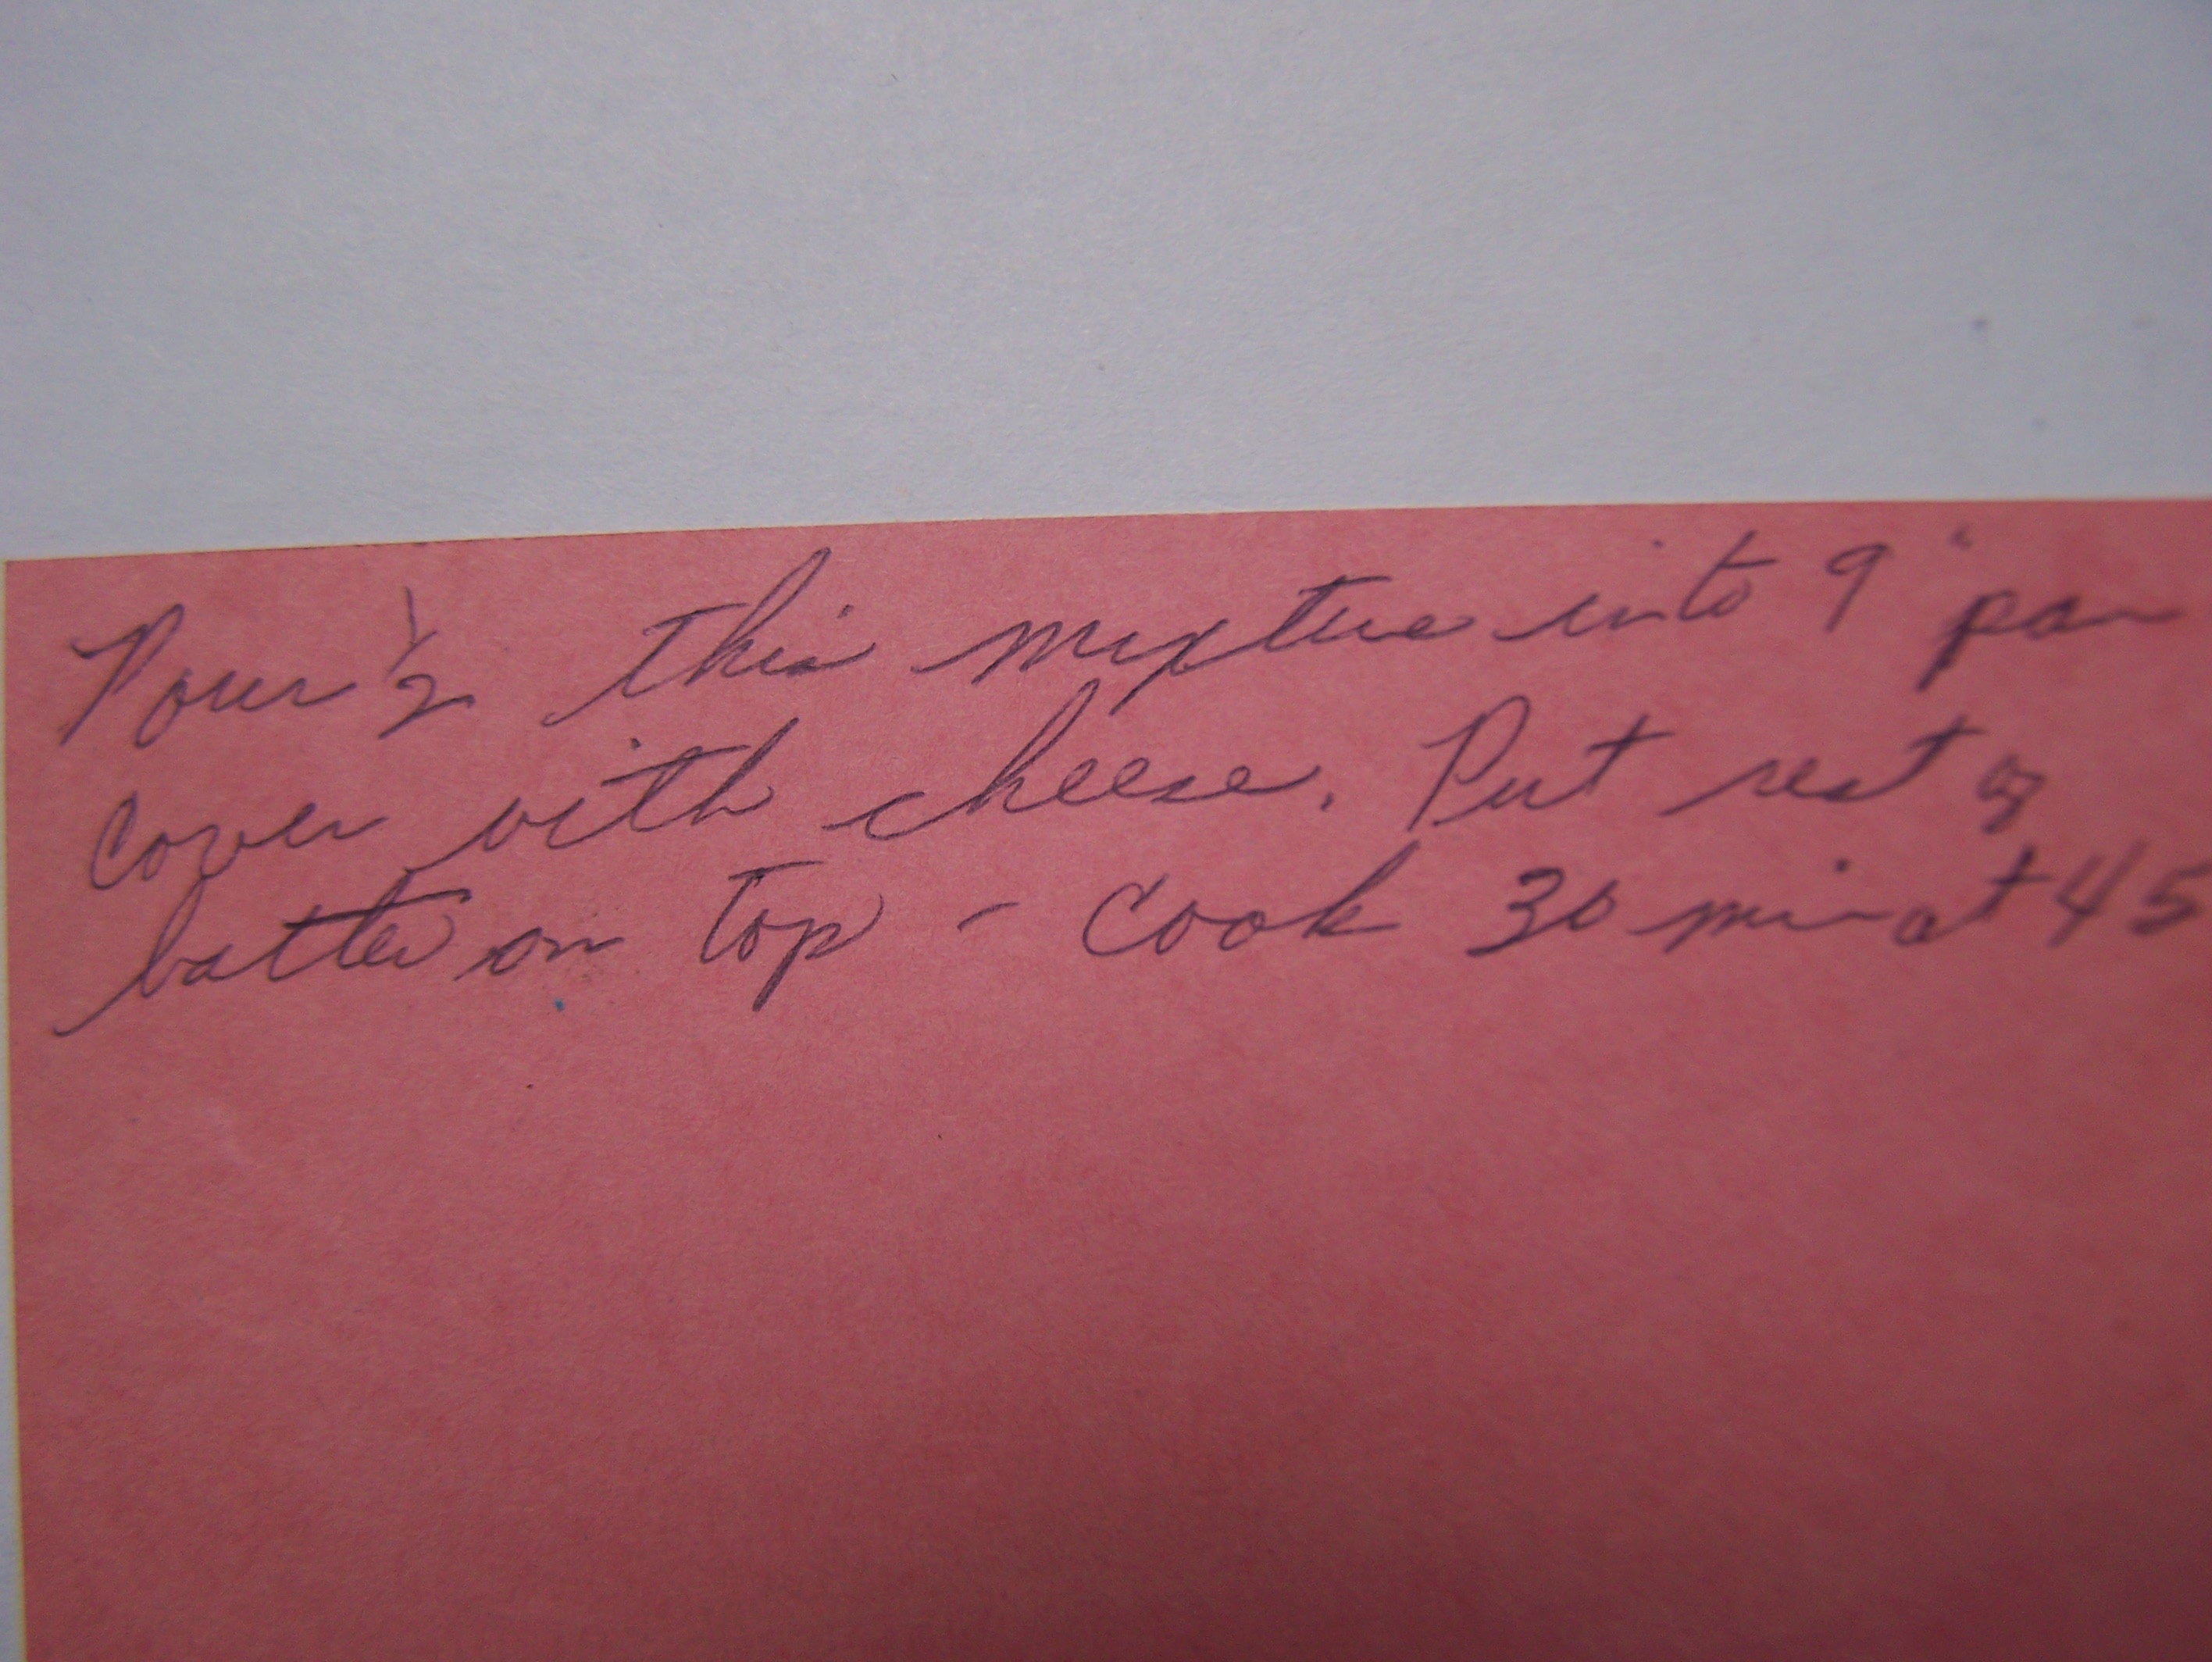 Pour 1/2 this mixture into 9" pan
cover with cheese. Put rest of
batter on top - Cook 30 min at 45